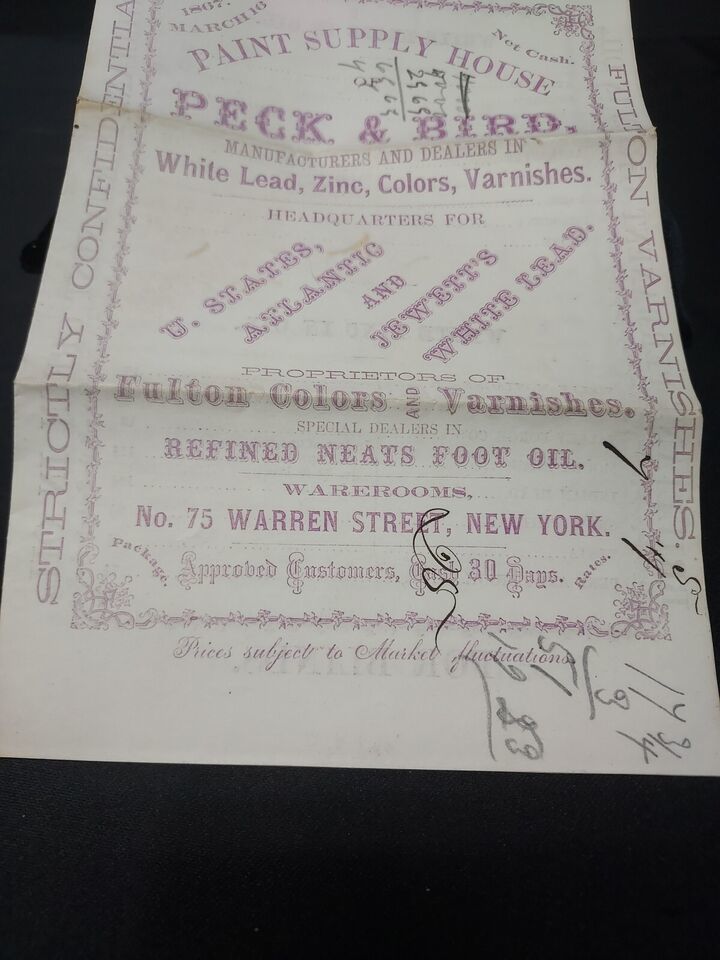 1867.
MARCH 16
Net Cash.
PAINT SUPPLY HOUSE
PECK & BIRD,
MANUFACTURERS AND DEALERS IN
White Lead, Zinc, Colors, Varnishes.
HEADQUARTERS FOR
U. STATES,
ATLANTIC
AND
JEWETT'S
WHITE LEAD.
PROPRIETORS OF
Fulton Colors AND Varnishes.
SPECIAL DEALERS IN
REFINED NEATS FOOT OIL.
WAREROOMS,
No. 75 WARREN STREET, NEW YORK.
Package
Approved Customers, Cash 30 Days.
Rates.
Prices subject to Market fluctuations
STRICTLY CONFIDENTIA
FULTON VARNISHES.
17 3/4
3
51